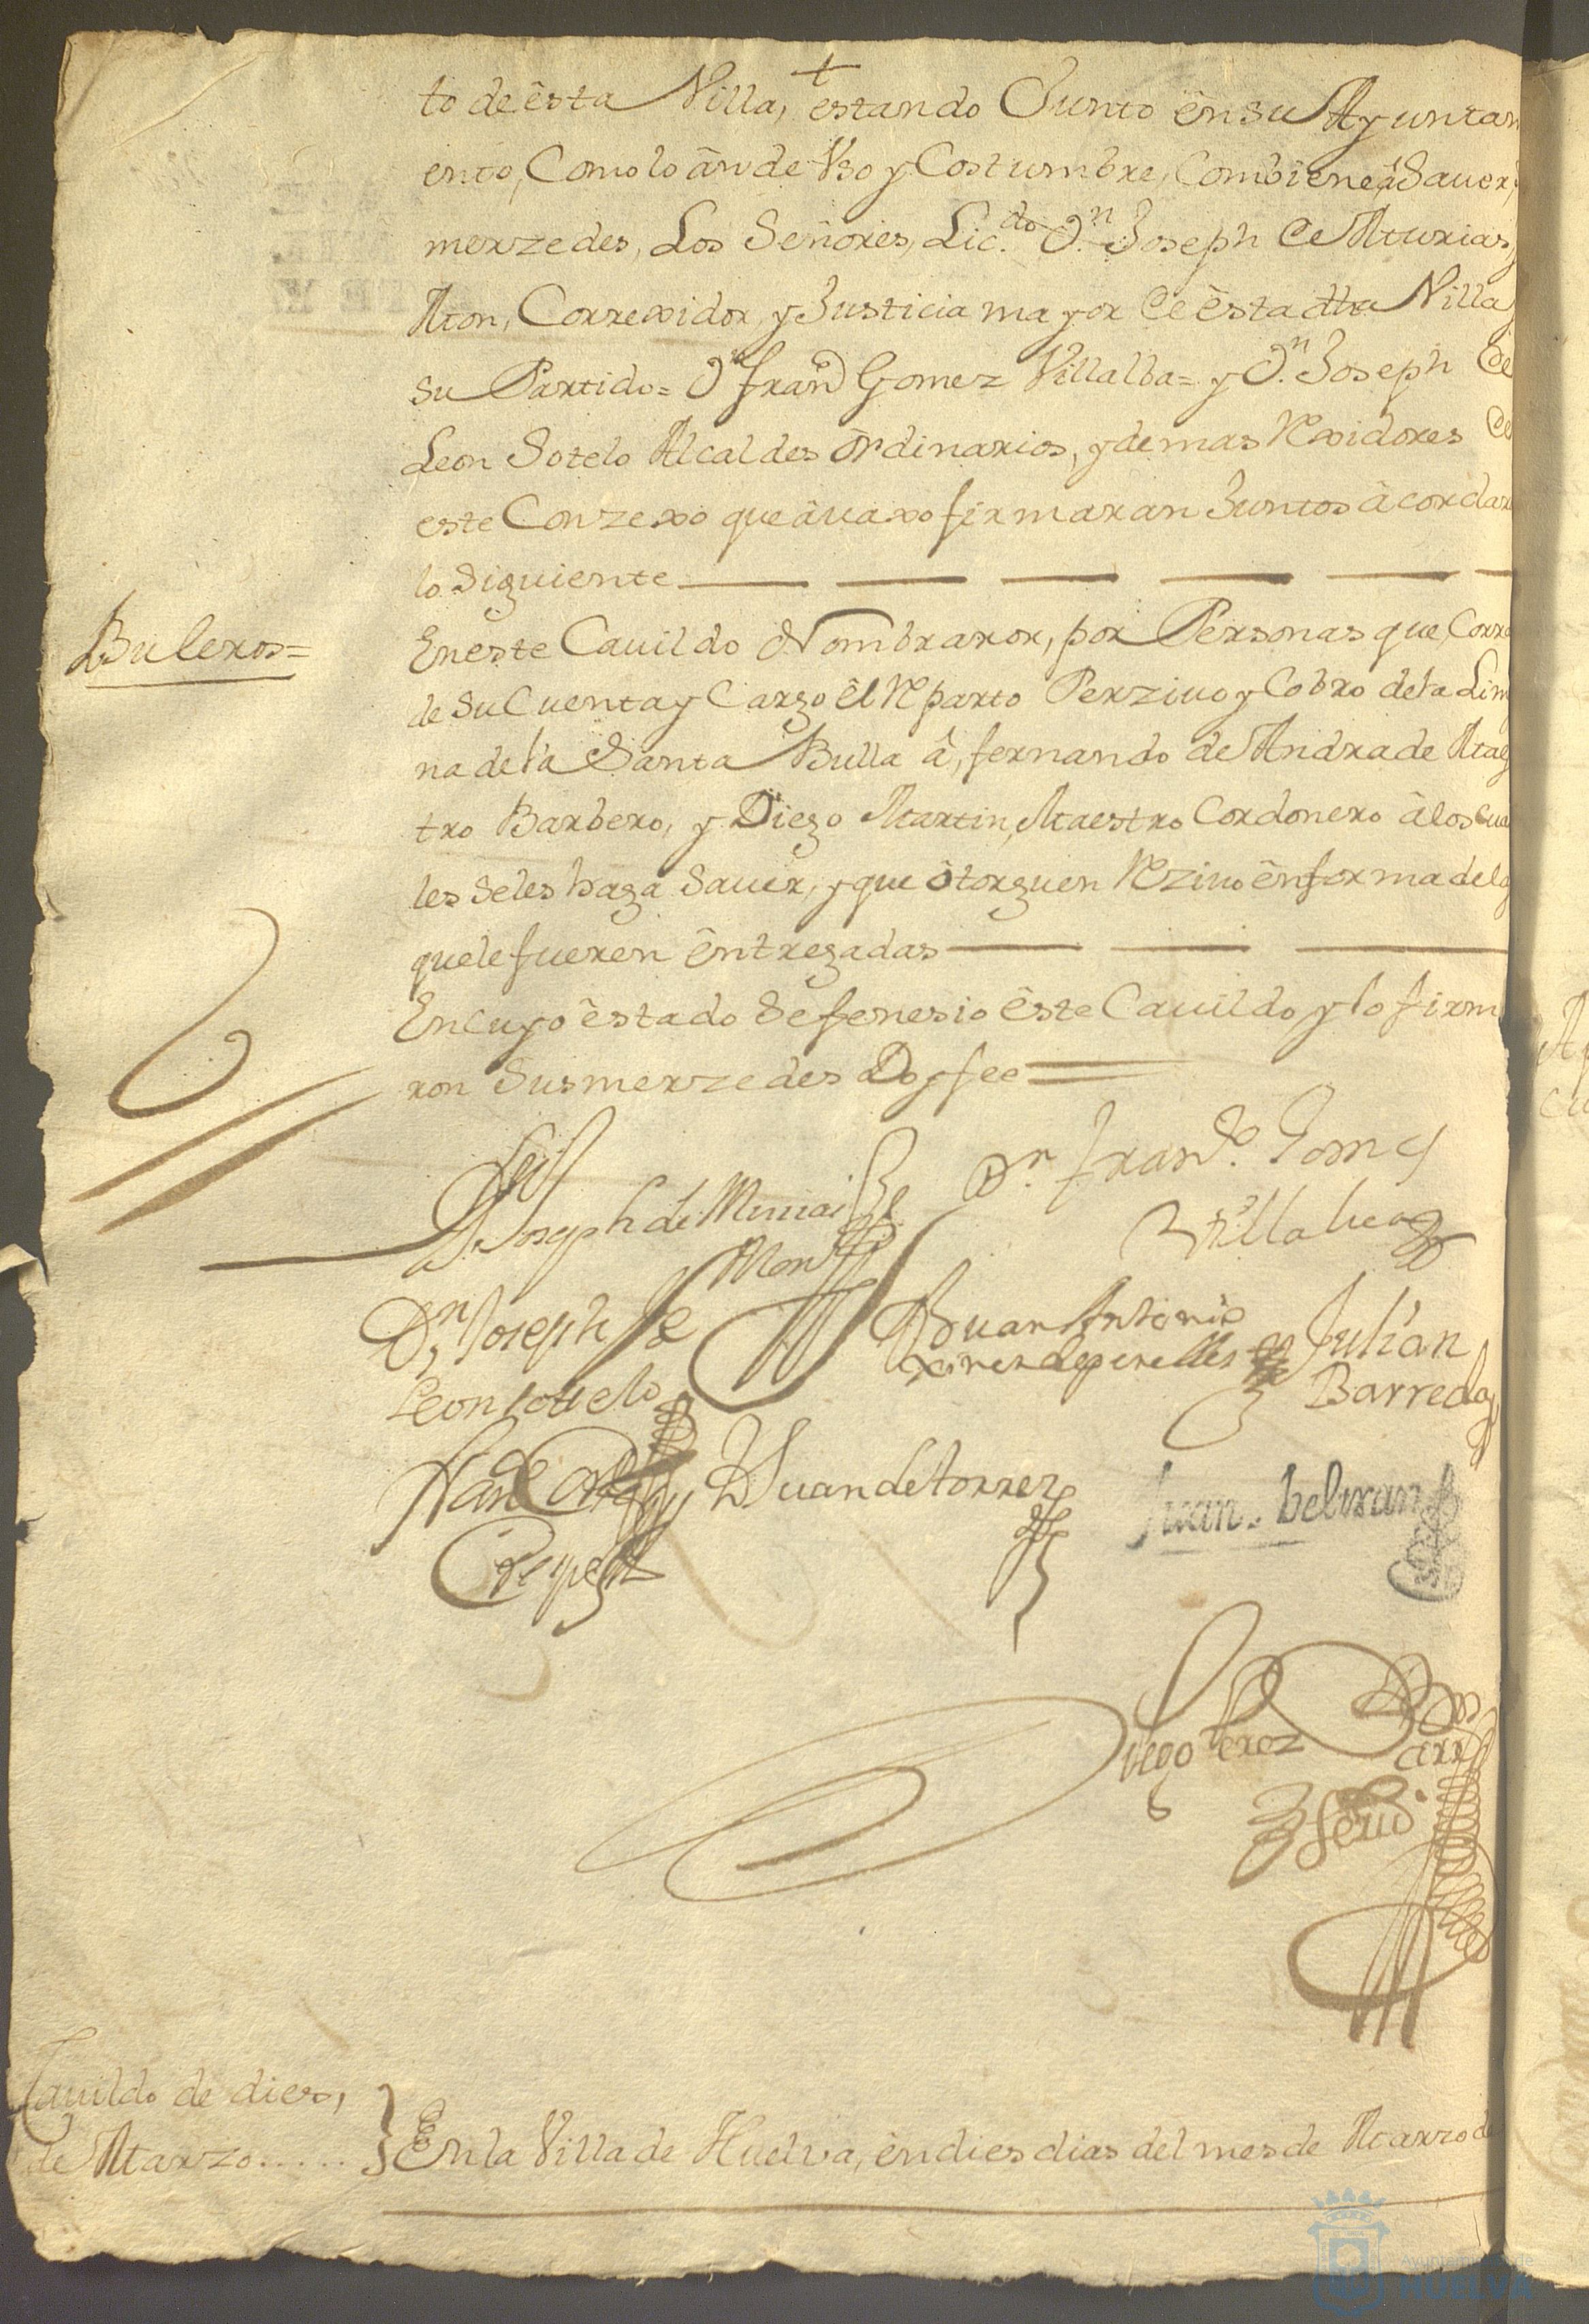 to de êsta Villa, estando Junto ên su Ayuntam
ento, Como lo ân de Vso y Costumbre, Combiene â Sauer,
merzedes, Los Señores, Lic.do D.n Joseph de Murias,
Mon, Correxidor, y Justicia mayor de êsta dha Villa
su Partido= Dn franco Gomez Villalba= y D.n Joseph de
Leon Sotelo Alcaldes Ôrdinarios, y demas Rexidores de
este Conzexo que âuaxo firmaran Juntos âcordar
lo Siguiente
Buleros=
En este Cauildo Nombraron, por Personas que, Corra
de su Cuenta y Cargo êl Reparto Perziuo y Cobro de la Lim
na de la Santa Bulla â, fernando de Andrade Maes
tro Barbero, y Diego Martin, Maestro Cordonero â los Cua
les se les haga Sauer, y que ôtorguen Reziuo ên forma de la
que le fueren êntregadas
En cuyo êstado Se fenesio êste Cauildo y lo firm
ron Sus merzedes Doy fee
Lisdo
Dn Joseph de Murias
Mon
Dn franco Gomez
Villalba
Dn Joseph de
Leon sotelo
Juan Antonio
Julian
Barreda
Juan de torres
Juan. beltran
Diego Perez
Cauildo de dies,
de Marzo.....
En la Villa de Huelva, ên dies dias del mes de Marzo de
Ayuntamiento de
HUELVA